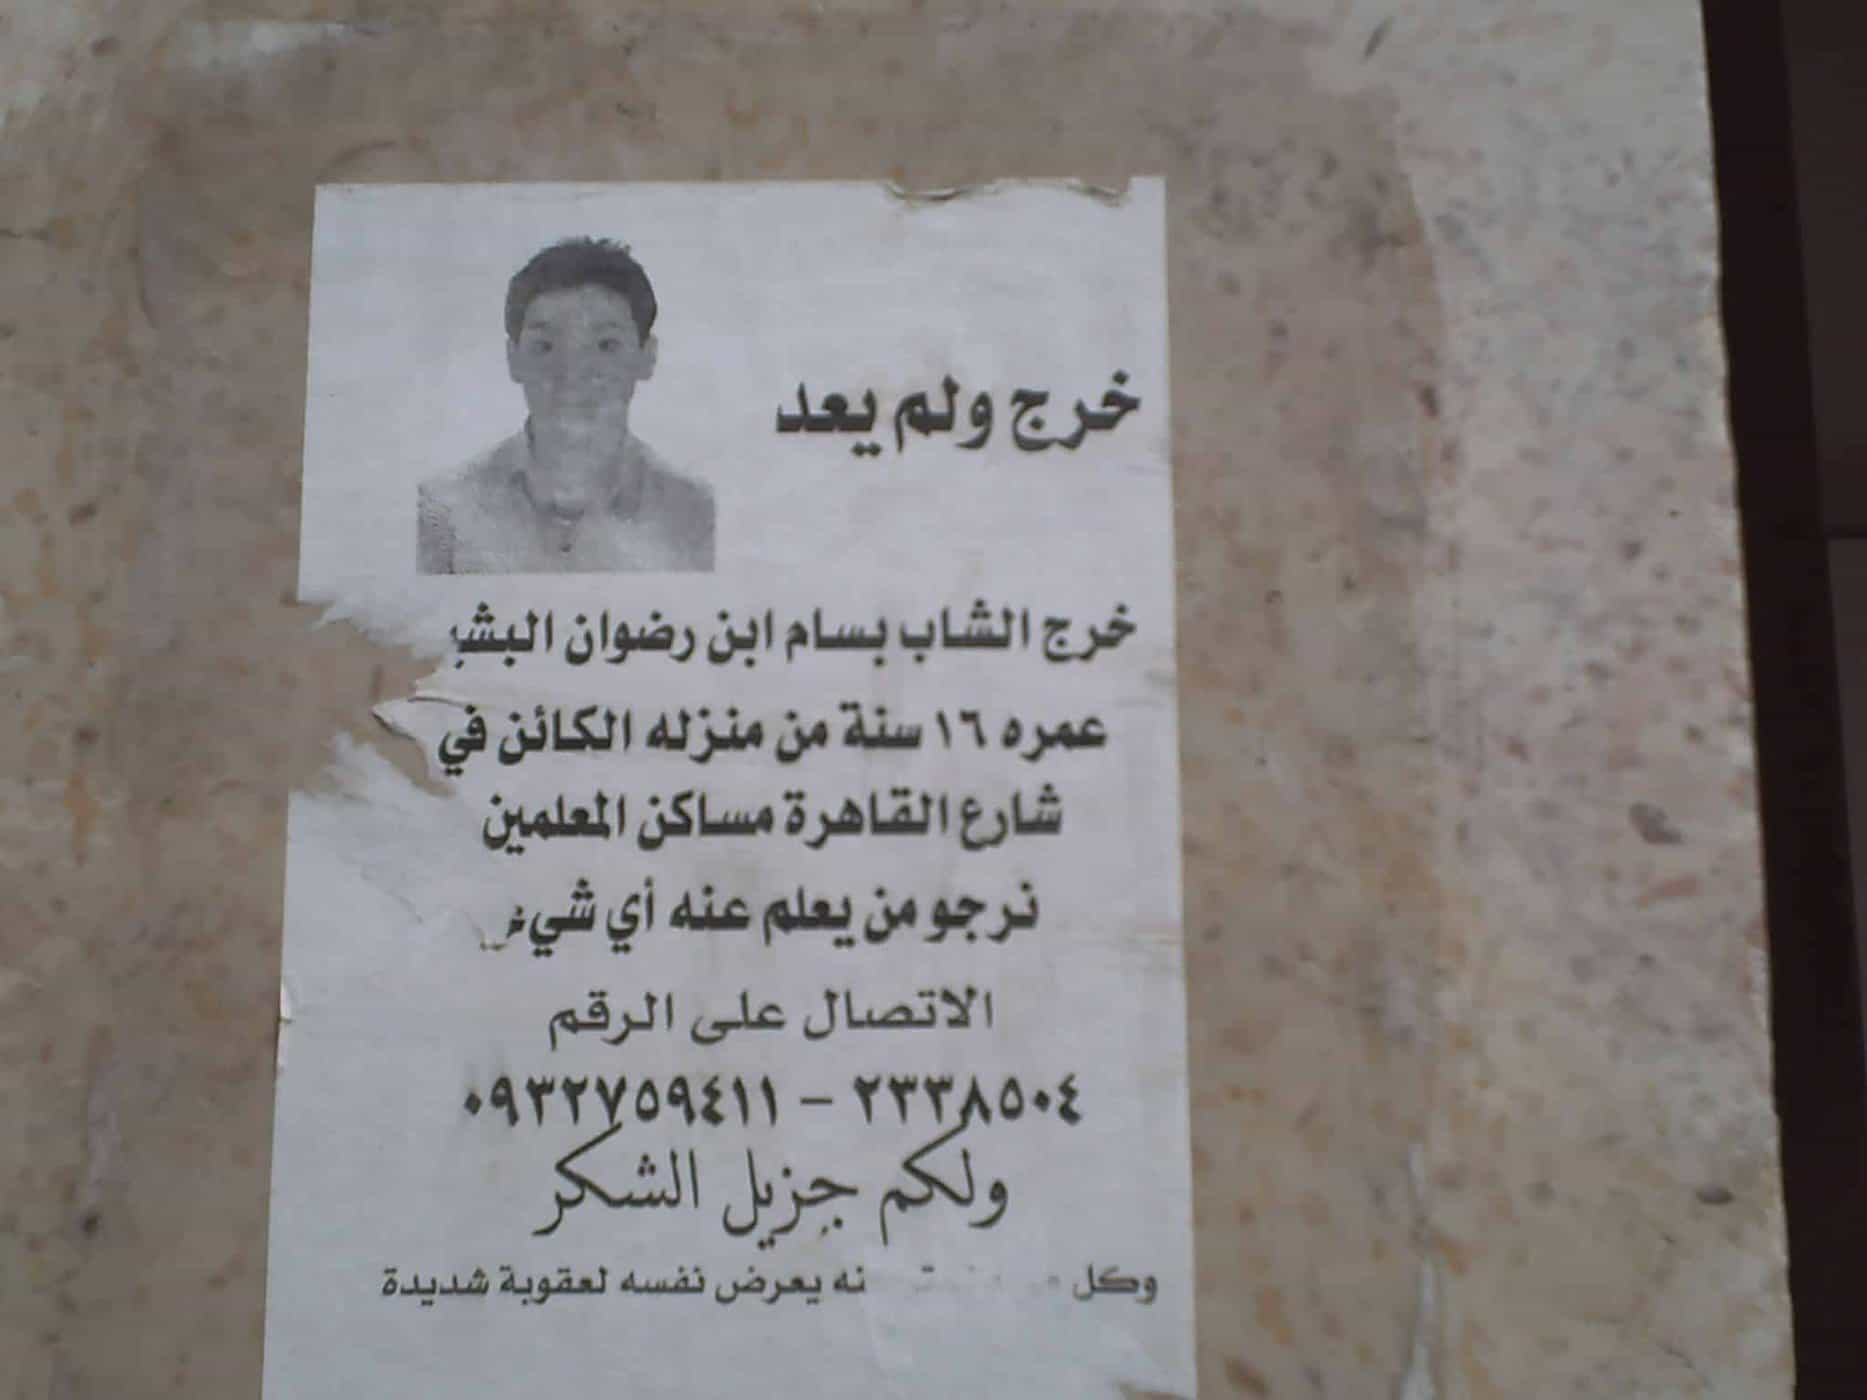 خرج ولم يعد
خرج الشاب بسام ابن رضوان
عمره ١٦ سنة من منزله الكائن في
شارع القاهرة مساكن المعلمين
نرجو من يعلم عنه أي شيء
الاتصال على الرقم
٠٩٣٢٧٥٩٤١١ – ٢٣٣٨٥٠٤
ولكم جزيل الشكر
وكل يعرض نفسه لعقوبة شديدة